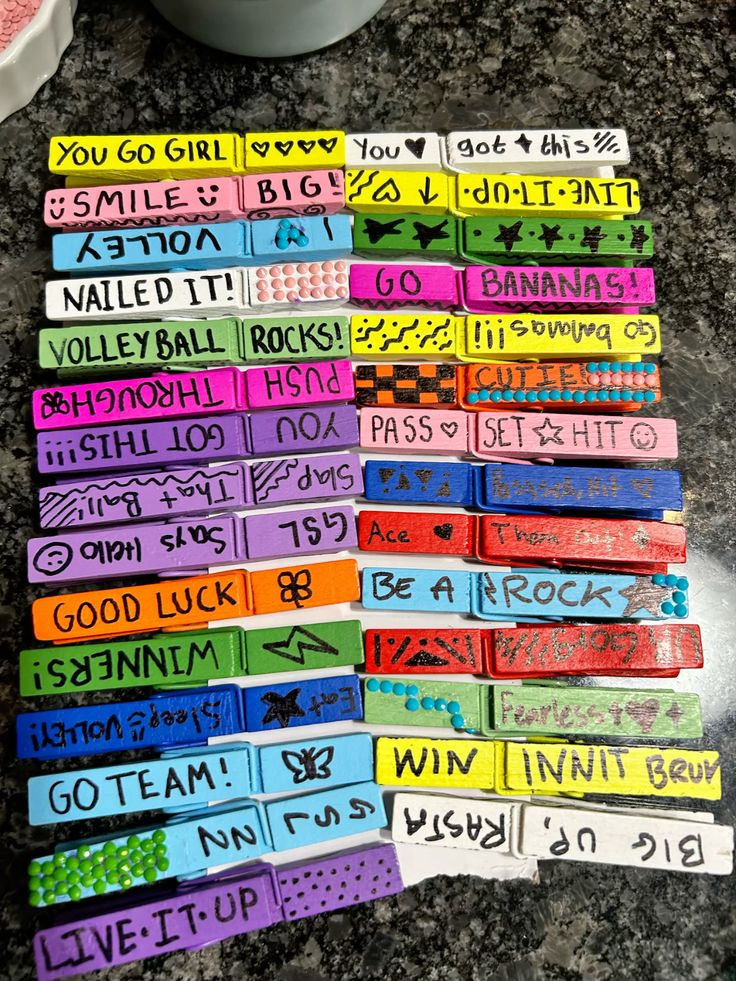 YOU GO GIRL
SMILE BIG!
I VOLLEY
NAILED IT!
VOLLEYBALL ROCKS!
PUSH THROUGH
YOU GOT THIS!!!
Slap That Ball!
GSL Says Hello
GOOD LUCK
WINNERS!
Eat Sleep VOLLEY!
GO TEAM!
GSJ NN
LIVE·IT·UP
You got this
LIVE·IT·UP
GO BANANAS!
Go bananas!!!
CUTIE!
PASS SET HIT
Pass, set, Hit
Ace Them Out!
BE A ROCK
Fearless
WIN INNIT BRUV
BIG UP, RASTA